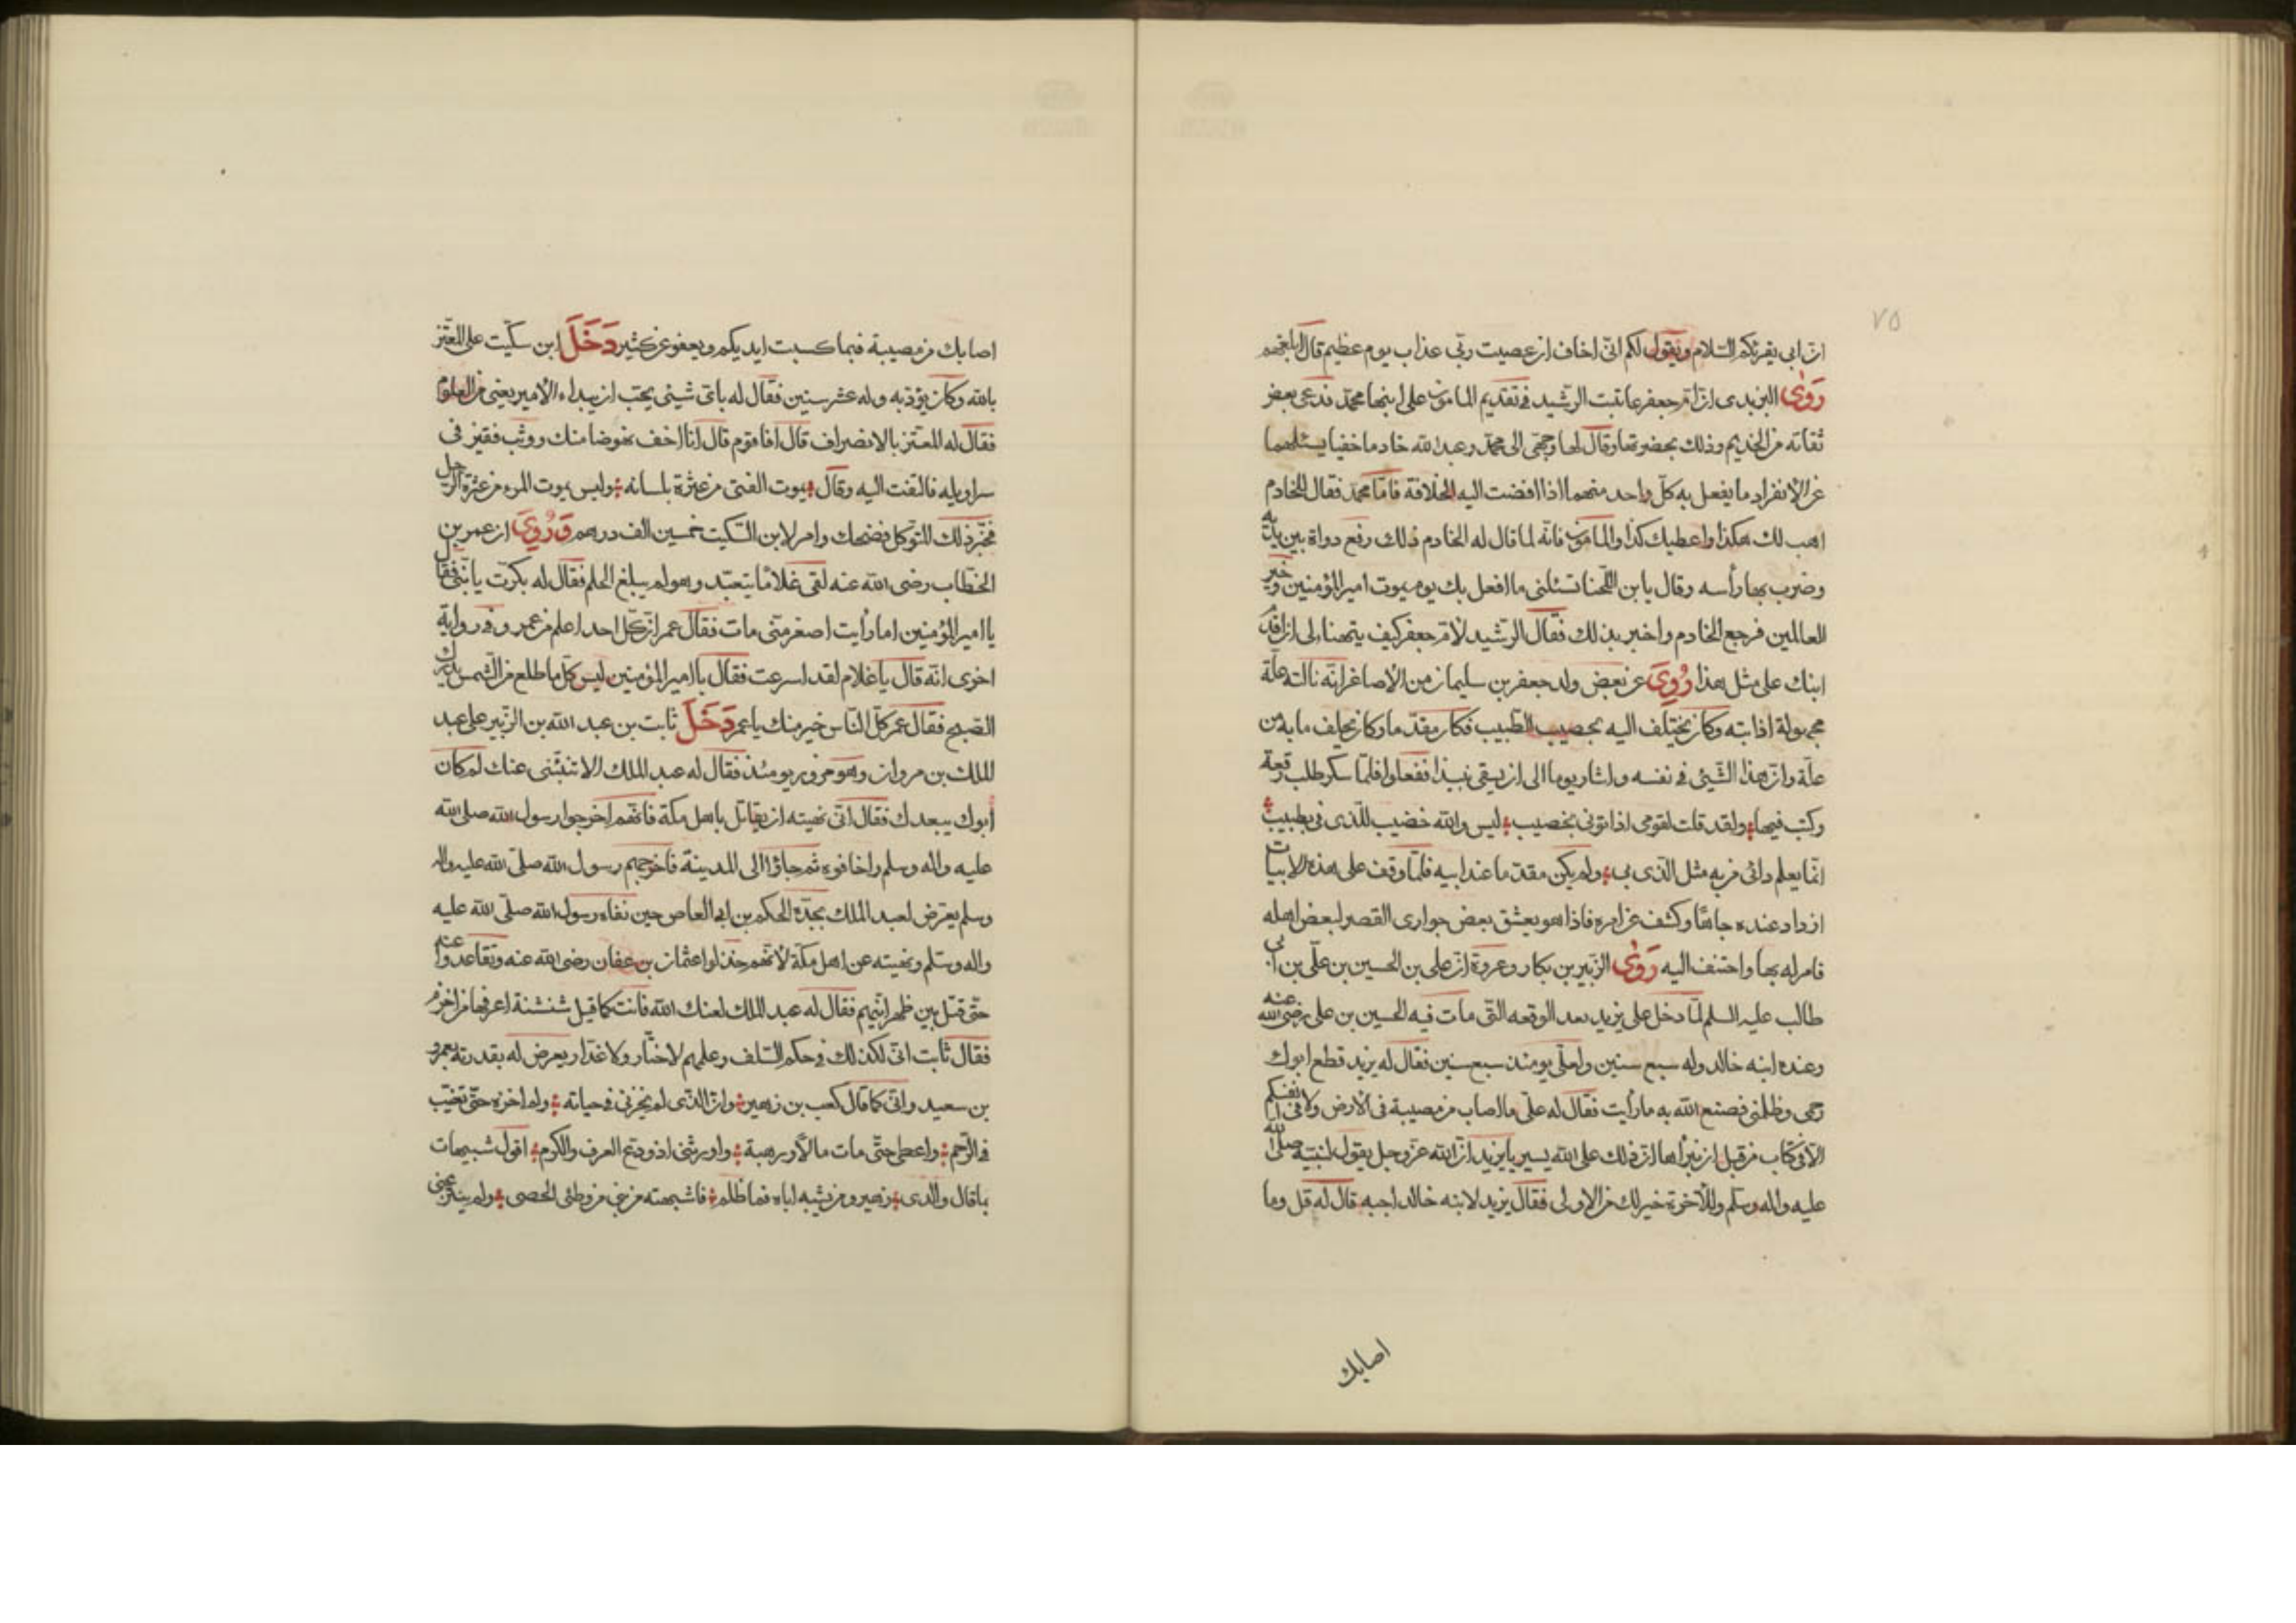 ٧٥
ان ابى يقرئكم السلام ويقول لكم انى اخاف ان عصيت ربى عذاب يوم عظيم قال ابلغهم
رَوٰى اليزيدى ان ام جعفر عاتبت الرشيد فى تقديم المامون على ابنها محمد فدعى بعض
ثقاته من الخديم وذلك بحضرتها وقال لها وجهى الى محمد وعبد الله خادما خفيا يسئلهما
عن الانفراد ما يفعل به كلّ واحد منهما اذا افضت اليه الخلافة فامّا محمد فقال للخادم
اهب لك هكذا واعطيك كذا والمامون فانّه لما قال له الخادم ذلك رفع دواة بين يديه
وضرب بها رأسه وقال يا بن اللخنا تسئلنى ما افعل بك يوم يموت امير المؤمنين وخير
العالمين فرجع الخادم واخبر بذلك فقال الرشيد لام جعفر كيف يتهنا لى ان اقدم
ابنك على مثل هذا رُوِىَ عن بعض ولد جعفر بن سليمان من الاصاغر انه نالته علة
مجهولة اذابته وكان يختلف اليه بخصيب الطبيب فكان مقدّما وكان يحلف ما به من
علة وان هذا الشيئ فى نفسه واشار يوما الى ان يسقى نبيذا ففعلوا فلما سكر طلب رقعة
وكتب فيها ولقد قلت لقومى اذا تونى بخصيب ليس والله خضيب للذى فى بطبيب
انما يعلم دائى من به مثل الذى بى ولم يكن مقدّما عند ابيه فلمّا وقف على هذه الابيات
ازداد عنده جاها وكشف عن امره فاذا هو يعشق بعض جوارى القصر لبعض اهله
فامر له بها واحتنف اليه رَوٰى الزبير بن بكار وعروة ان على بن الحسين بن على بن ابى
طالب عليه السلم لمّا دخل على يزيد بعد الوقعه التى مات فيه الحسين بن على رضى الله عنه
وعنده ابنه خالد وله سبع سنين ولعلى يومئذ سبع سنين فقال له يزيد قطع ابوك
رحمى وظلمنى فصنع الله به ما رأيت فقال له على ما اصاب من مصيبة فى الارض ولا فى انفسكم
الا فى كتاب من قبل ان نبرأها ان ذلك على الله يسير يا يزيد ان الله عز وجل يقول لنبيّه صلى الله
عليه واله وسلم وللآخرة خير لك من الاولى فقال يزيد لابنه خالد اجبه قال له قل وما
اصابك
اصابك من مصيبة فبما كسبت ايديكم ويعفو عن كثير دَخَلَ ابن سكّيت على المعتز
بالله وكان يؤدّبه وله عشر سنين فقال له باىّ شيئى يحبّ ان يبداء الامير يعنى من العلوم
فقال له المعتز بالانصراف قال افاقوم قال انا اخف نهوضا منك ووثب فقيز فى
سراويله فالتفت اليه وقال يموت الفتى من عثرة بلسانه وليس يموت المرء من عثرة الرجل
فخبّر ذلك المتوكل فضحك وامر لابن السكيت خمسين الف درهم وَرُوِىَ ان عمر بن
الخطّاب رضى الله عنه لقى غلاما يتعبّد وهو لم يبلغ الحلم فقال له بكرت يا بنى فقال
يا امير المؤمنين اما رأيت اصغر منّى مات فقال عمر ان كل احد اعلم من عمر وفى رواية
اخرى انّه قال يا غلام لقد اسرعت فقال يا امير المؤمنين ليس كلّ ما طلع من الشمس يدرك
الصبح فقال عمر كلّ الناس خير منك يا عمر دَخَلَ ثابت بن عبد الله بن الزبير على عبد
الملك بن مروان وهو حزور يومئذ فقال له عبد الملك الا تنبّئنى عنك لم كان
أبوك يبعدك فقال انى نهيته ان يقاتل باهل مكة فانهم اخرجوا رسول الله صلى الله
عليه واله وسلم واخافوه ثم جاؤا الى المدينة فاخرجهم رسول الله صلى الله عليه واله
وسلم يعرّض لعبد الملك بجدّه الحكم بن ابى العاص حين نفاه رسول الله صلى الله عليه
واله وسلم ونهيته عن اهل مكة لانهم خذلوا عثمان بن عفان رضى الله عنه وتقاعدوا عنه
حتّى قتل بين ظهرانيهم فقال له عبد الملك لعنك الله فانت كما قيل شنشنة اعرفها من اخزم
فقال ثابت انى لكذلك فى حكم السلف وعلمهم لا ختّار ولا غدّار يعرض له بغدرته بعمرو
بن سعيد وانى كما قال كعب بن زهير وان الذى لم يخزنى فى حياته ولم اخزه حتى تغيّب
فى الرّحم واعطى حتى مات مالا ورهبة واورثنى اذ ودع العرف والكرم اقول شبيهات
بما قال والدى زهير ومن يشبه اباه فما ظلم فاشبهته من بين من وطئ الحصى ولم ينتزعنى